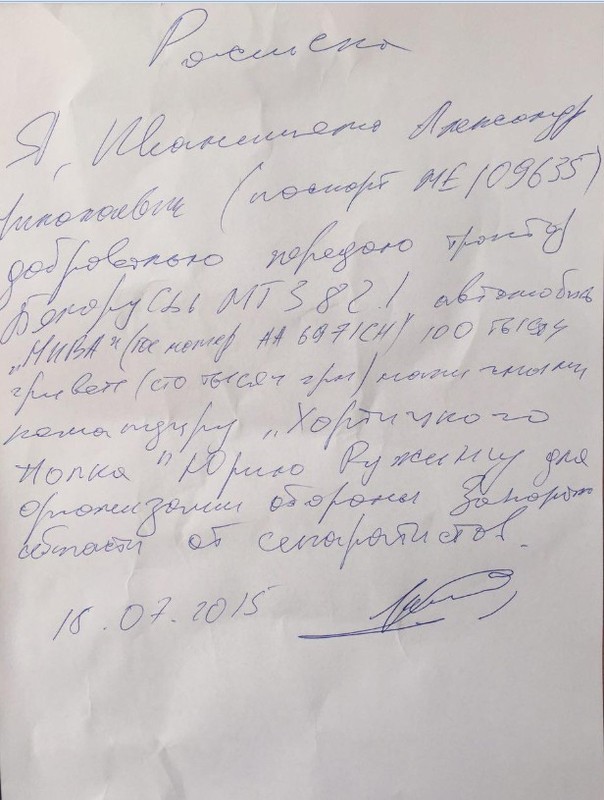 Росписка
Я, Иванишена Александр
николаевич (паспорт МЕ 109635)
добровольно передаю трактор
Белорусы МТЗ 82.1 автомобиль
"НИВА" (гос номер АА 6971СН) 100 тысяч
гривен (сто тысяч грн) наличными
командиру "Хортицкого
полка" Юрию Ружину для
организации обороны Запорож
области от сепаратистов.
16.07.2015